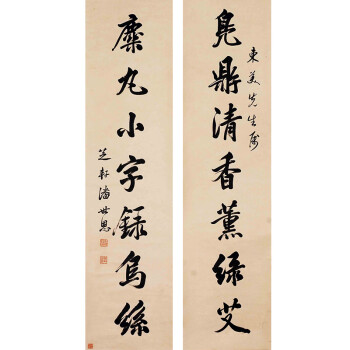 鳧鼎清香薰綠艾
東美先生屬
麋丸小字録烏絲
芝軒潘世恩